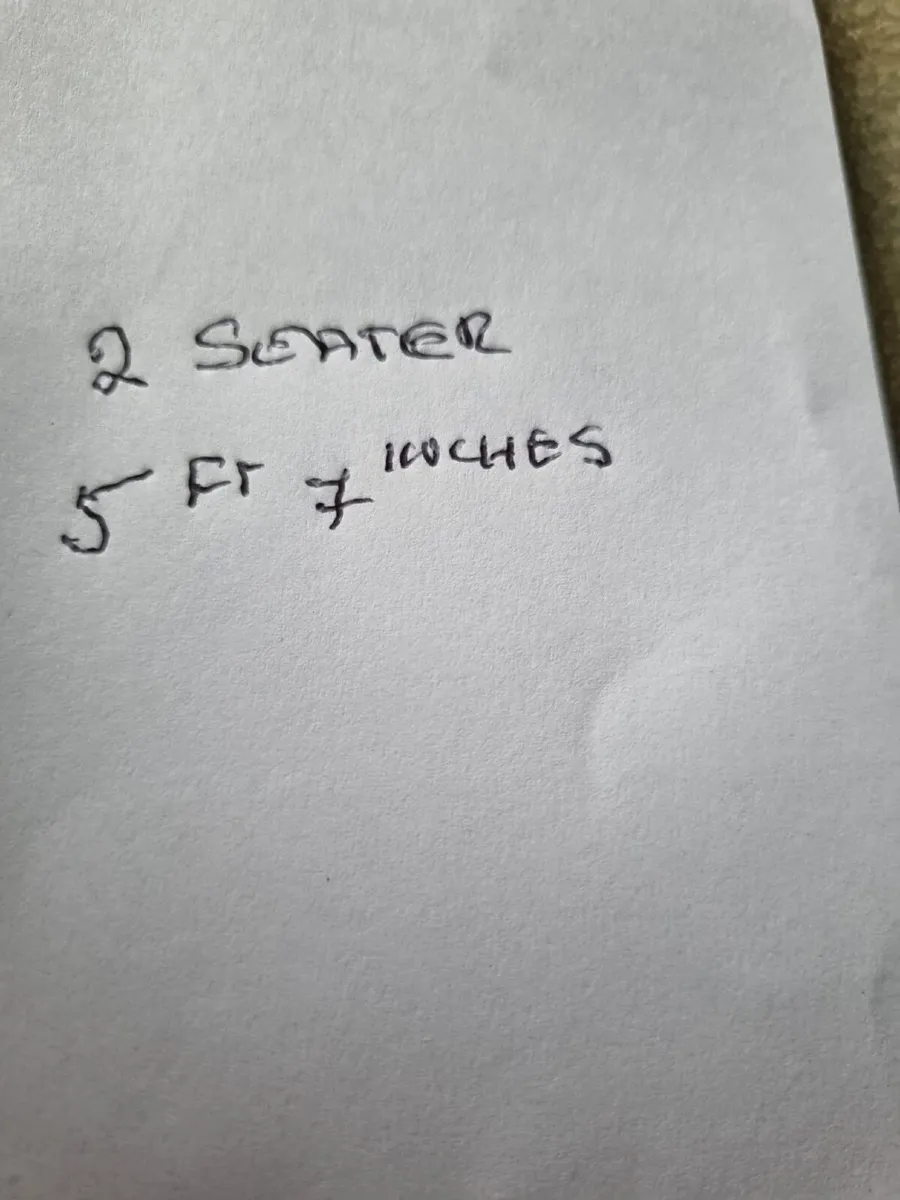 2 SEATER
5 FT 7 INCHES